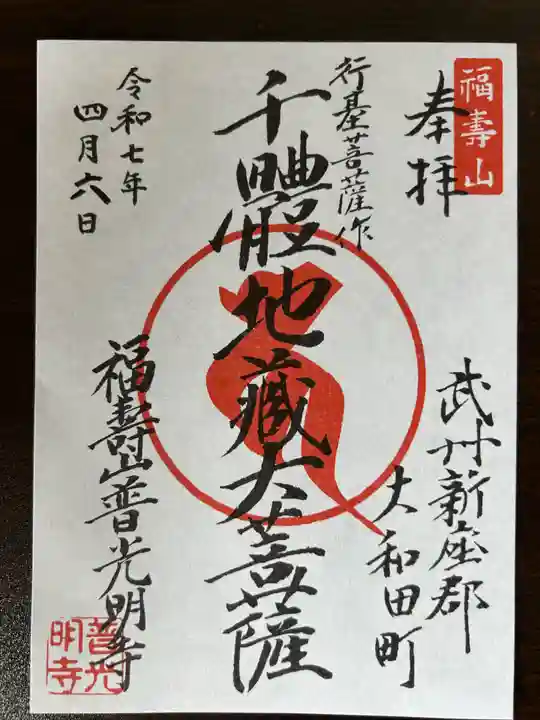 福壽山
奉拝
武州新座郡
大和田町
行基菩薩作
千體地蔵大菩薩
福壽山普光明寺
令和七年
四月六日
普光
明寺